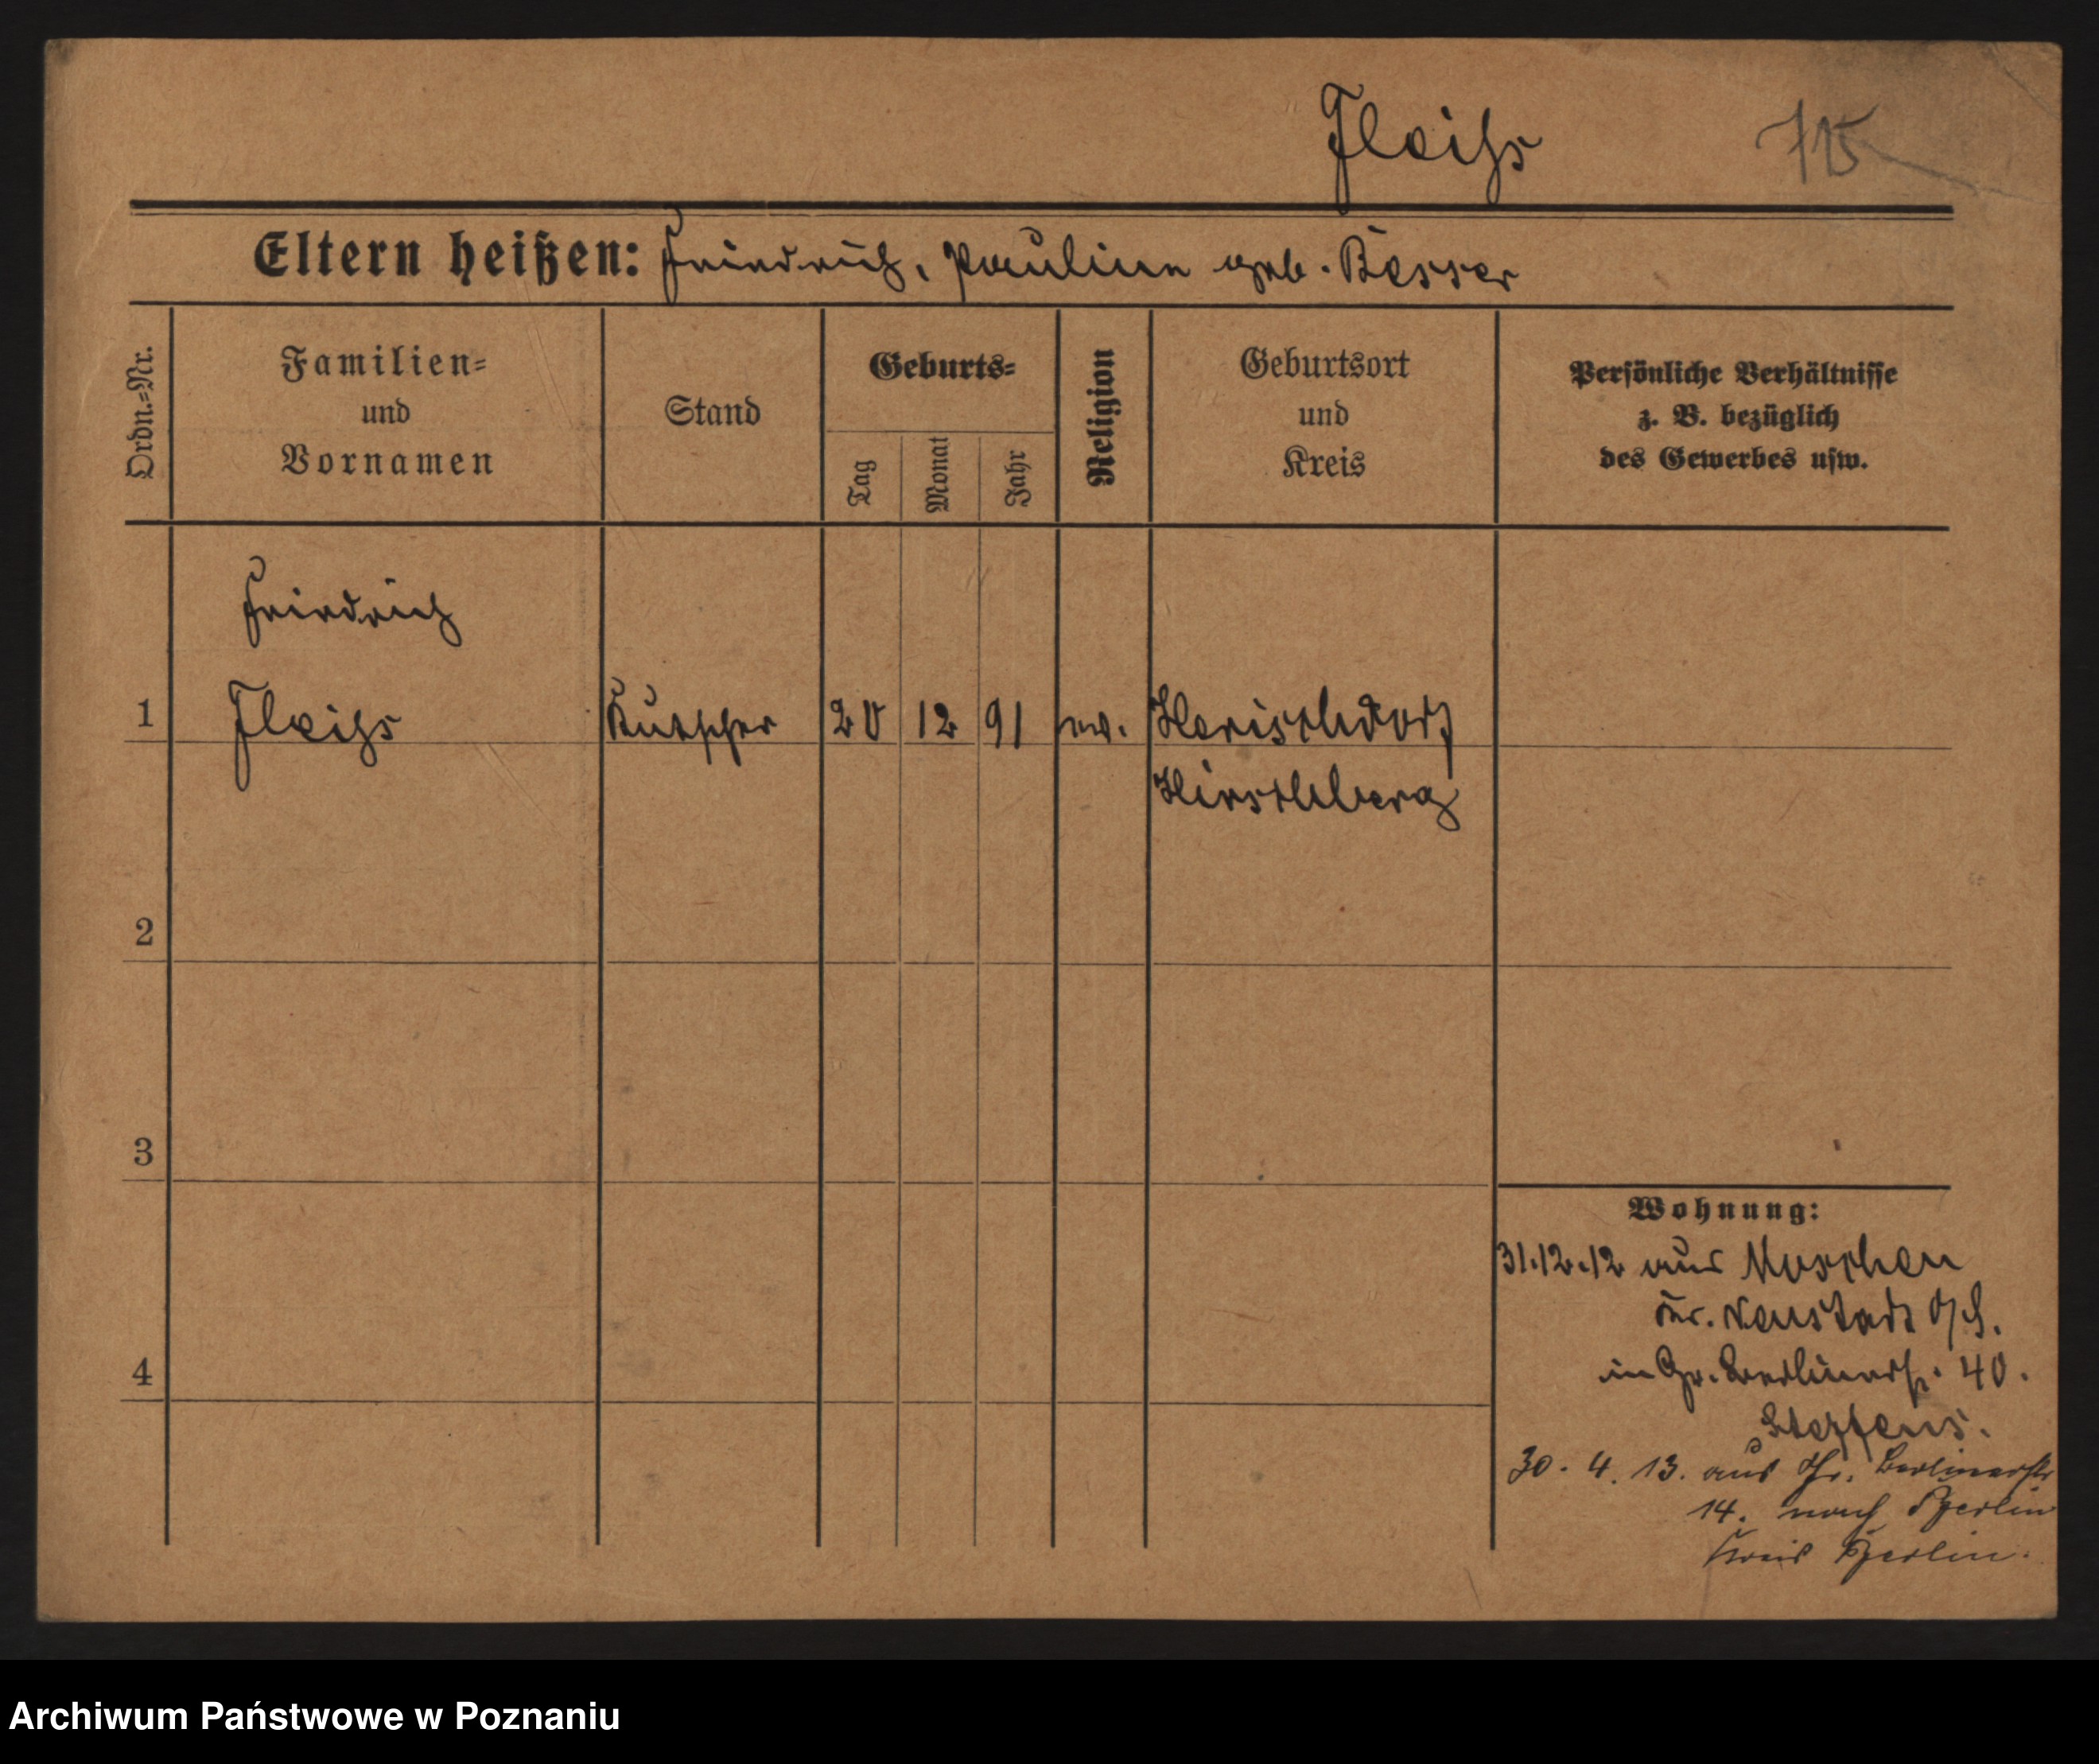 Fleiss
715
Eltern heißen: Friedrich, Pauline geb. Besser
Ordn.-Nr.
Familien-
und
Vornamen
Stand
Geburts-
Tag
Monat
Jahr
Religion
Geburtsort
und
Kreis
Persönliche Verhältnisse
z. B. bezüglich
des Gewerbes usw.
Friedrich
1 Fleiss Kutscher 20 12 91 ev. Herischdorf
Hirschberg
2
3
4
Wohnung:
31.12.12 aus Moschen
Kr. Neustadt O/S.
in Gr. Berlinerstr. 40.
Steffens.
30. 4. 13. aus Gr. Berlinerstr
14. nach Berlin
Kreis Berlin.
Archiwum Państwowe w Poznaniu